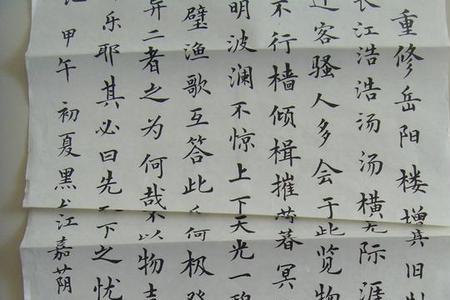 重修岳阳楼增其旧制
长江浩浩汤汤横无际涯
迁客骚人多会于此览物
不行樯倾楫摧薄暮冥
明波澜不惊上下天光一碧
璧渔歌互答此乐何极登
异二者之为何哉不以物喜
乐耶其必曰先天下之忧
甲午初夏黑龙江嘉荫